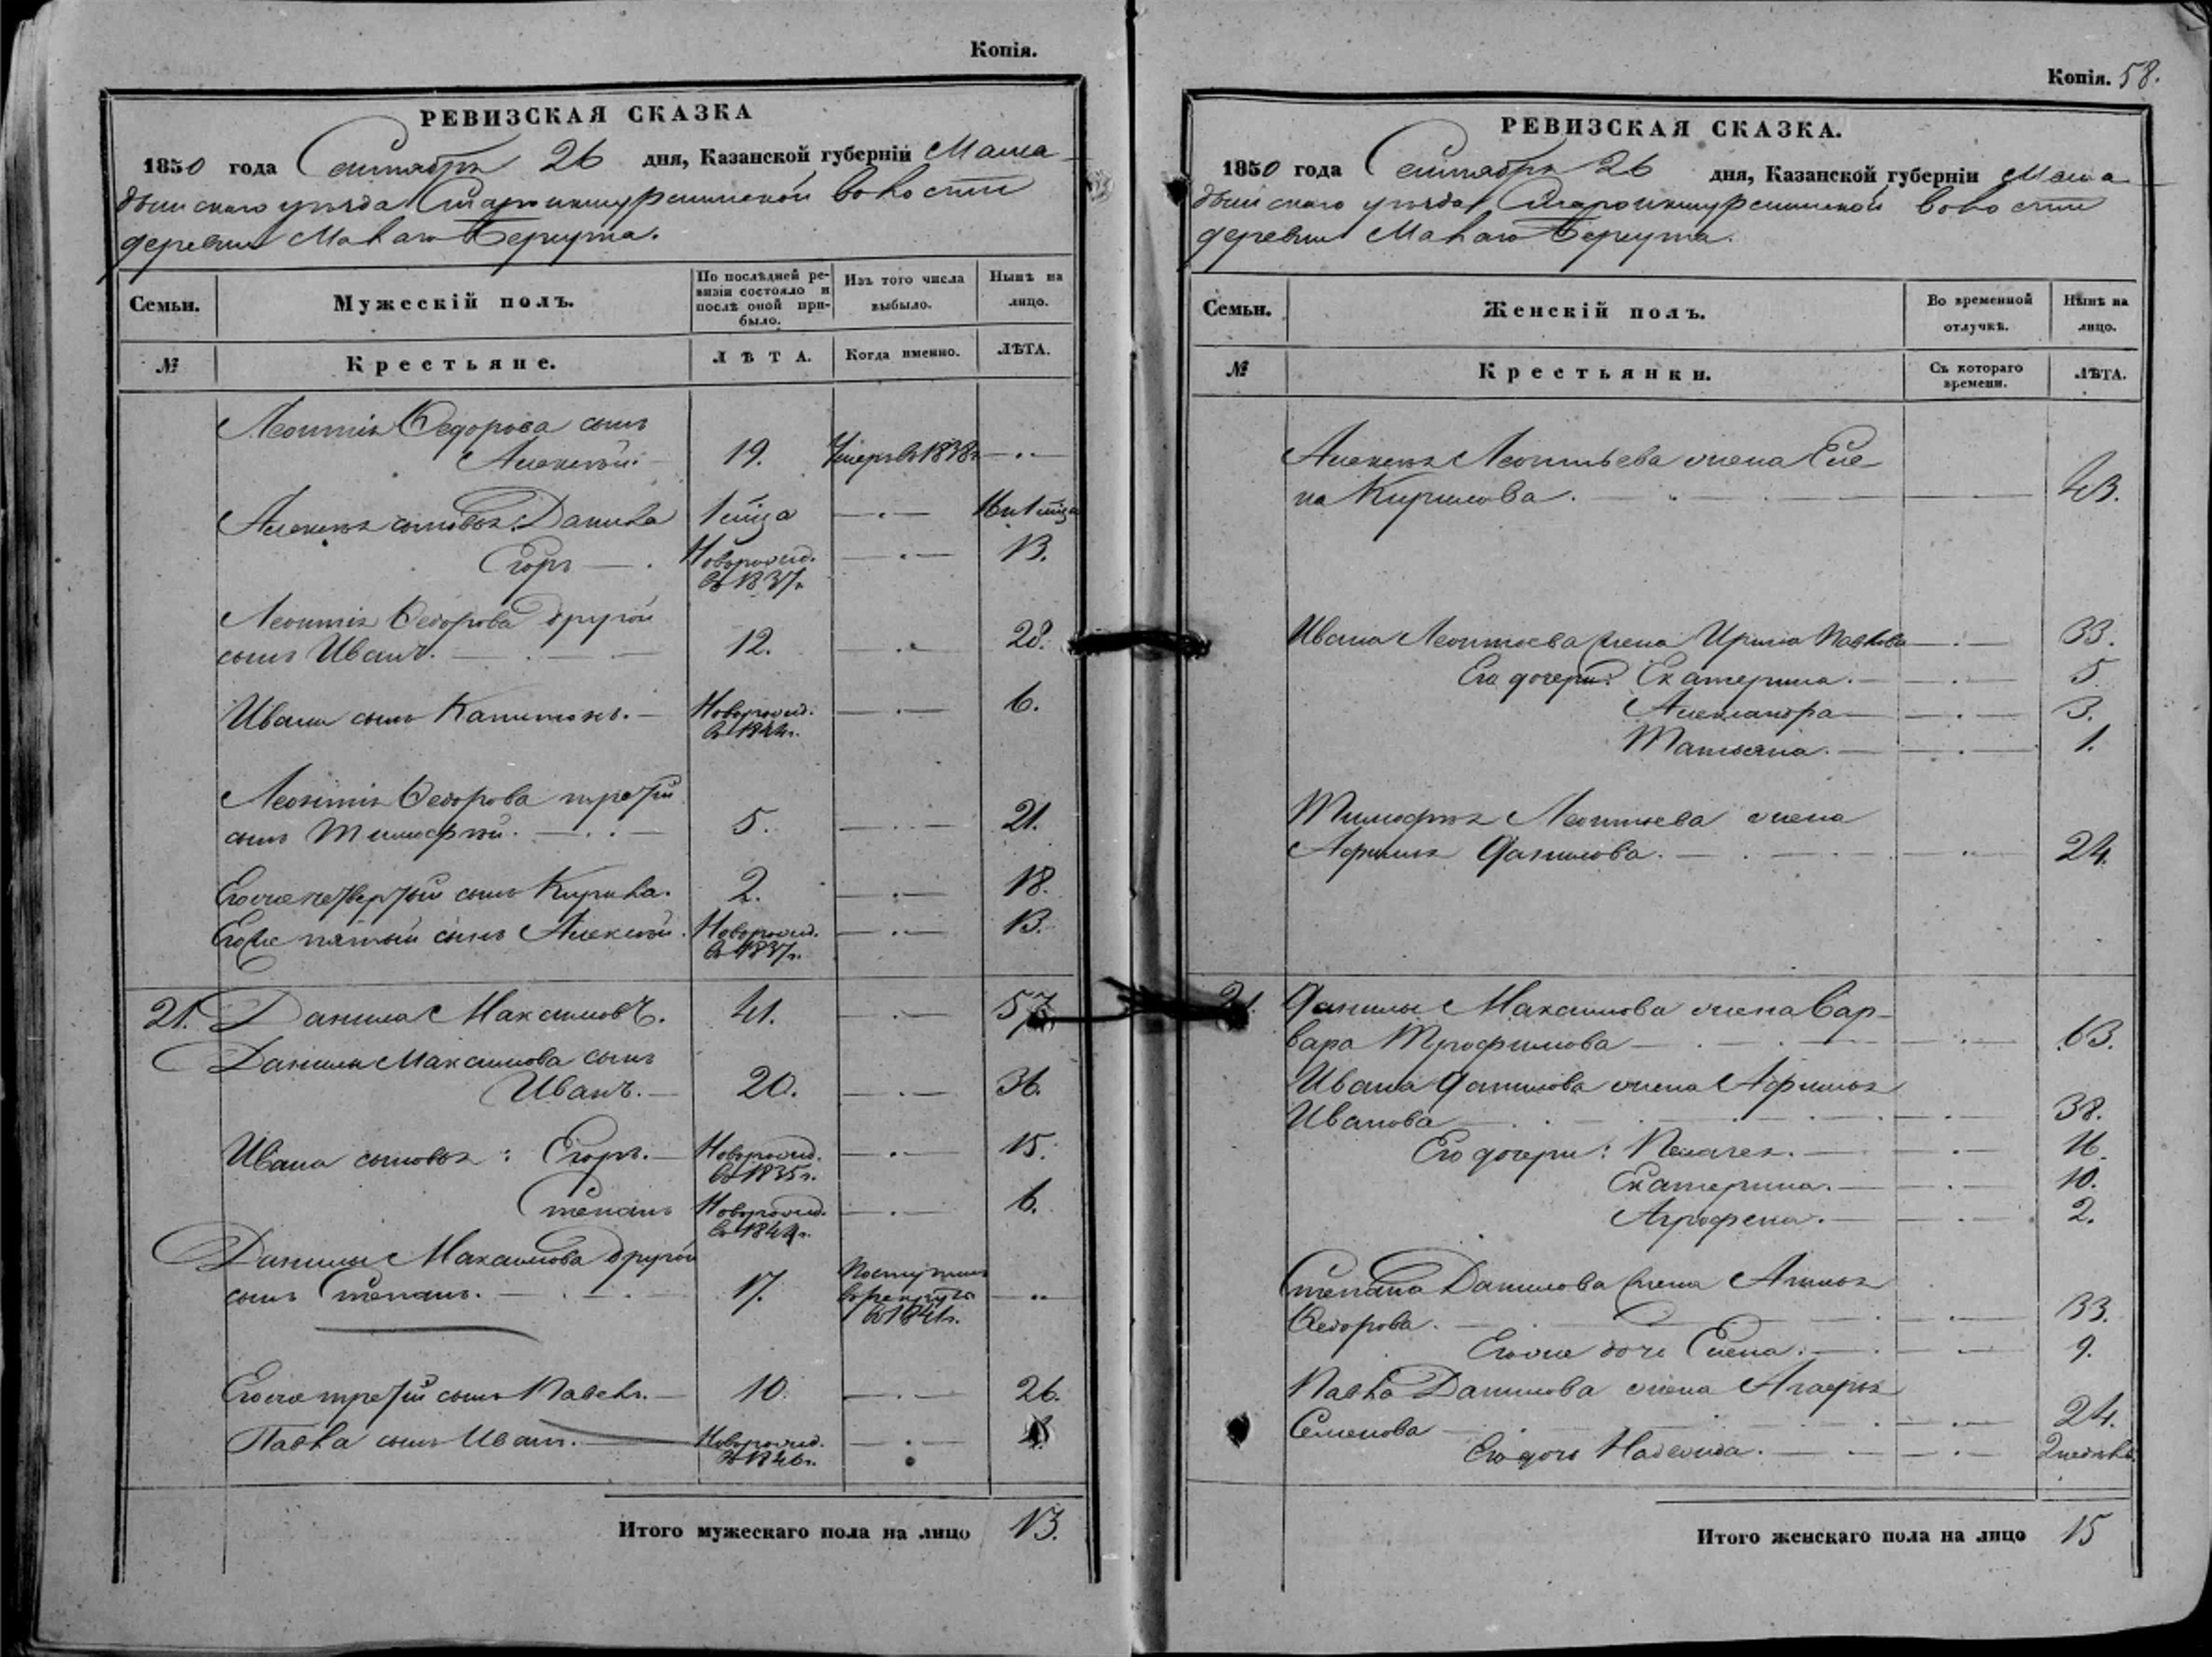 Копія.
РЕВИЗСКАЯ СКАЗКА
1850 года Сентября 26 дня, Казанской губерніи Мама-
дышскаго уѣзда Староикшурминской волости
деревни Малаго Беркута.
Семьи. Мужескій полъ. По послѣдней ре-визіи состояло и послѣ оной при-было. Изъ того числа выбыло. Нынѣ на лицо.
№ Крестьяне. ЛѢТА. Когда именно. ЛѢТА.
Леонтія Федорова сынъ
Алексѣй 19. Умеръ въ 1838 г.
Алексѣя сыновья: Данила 1 мѣца 16 и 1 мѣца
Егоръ Новорожд. въ 1837 г. 13.
Леонтія Федорова другой
сынъ Иванъ. 12. 28.
Ивана сынъ Капитонъ. Новорожд. въ 1844 г. 6.
Леонтія Федорова третій
сынъ Тимофѣй. 5. 21.
Его же четвертый сынъ Кирила. 2. 18.
Его же пятый сынъ Алексѣй. Новорожд. въ 1837 г. 13.
21. Данила Максимовъ. 41. 57.
Данилы Максимова сынъ
Иванъ. 20. 36.
Ивана сыновья: Егоръ. Новорожд. въ 1835 г. 15.
Степанъ Новорожд. въ 1844 г. 6.
Данилы Максимова другой
сынъ Степанъ. 17. Поступилъ въ рекруты въ 1841 г.
Его же третій сынъ Павелъ. 10. 26.
Павла сынъ Иванъ. Новорожд. въ 1846 г. 4.
Итого мужескаго пола на лицо 13.
Копія. 58.
РЕВИЗСКАЯ СКАЗКА.
1850 года Сентября 26 дня, Казанской губерніи Мама-
дышскаго уѣзда Староикшурминской волости
деревни Малаго Беркута.
Семьи. Женскій полъ. Во временной отлучкѣ. Нынѣ на лицо.
№ Крестьянки. Съ котораго времени. ЛѢТА.
Алексѣя Леонтьева жена Еле-
на Кирилова. 43.
Ивана Леонтьева жена Ирина Павлова 33.
Его дочери: Екатерина. 5
Александра 3.
Татьяна. 1.
Тимофѣя Леонтьева жена
Афимья Данилова. 24.
21. Данилы Максимова жена Вар-
вара Трофимова 63.
Ивана Данилова жена Афимья
Иванова 38.
Его дочери: Пелагея. 16.
Екатерина. 10.
Агрофена. 2.
Степана Данилова жена Анна
Федорова. 33.
Его же дочь Елена. 9.
Павла Данилова жена Агафья
Семенова 24.
Его дочь Надежда. 2 недѣль
Итого женскаго пола на лицо 15